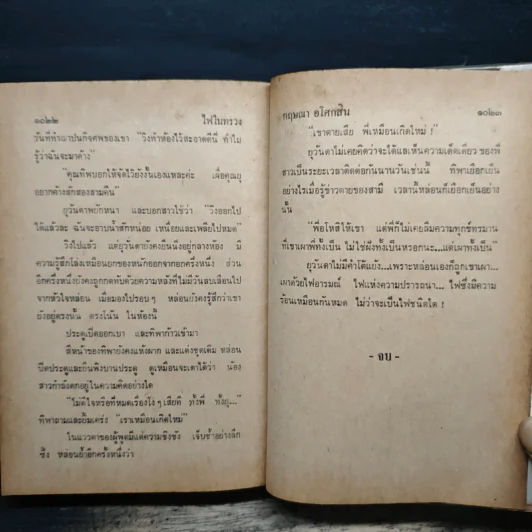 ๑๐๒๒ ไฟในทรวง
วันที่ทำฌาปนกิจศพของเขา "วิงทำห้องไว้สะอาดดีนี่ ทำไม
รู้ว่าฉันจะมาค้าง"
"คุณทิพบอกให้จัดไว้ยังงั้นเองแหละค่ะ เผื่อคุณยุ
อยากค้างสักสองสามคืน"
ยุวันดาพยักหน้า และบอกสาวใช้ว่า "วิงออกไป
ได้แล้วละ ฉันจะอาบน้ำสักหน่อย เหนื่อยและเพลียไปหมด"
วิงไปแล้ว แต่ยุวันดายังคงยืนนิ่งอยู่กลางห้อง มี
ความรู้สึกโล่งเหมือนยกของหนักออกจากอกครึ่งหนึ่ง ส่วน
อีกครึ่งหนึ่งยังคงถูกกดทับด้วยความหลังที่ไม่มีวันลบเลือนไป
จากหัวใจหล่อน เมื่อมองไปรอบๆ หล่อนยังคงรู้สึกว่าเขา
ยังอยู่ตรงนั้น ตรงโน้น ในห้องนี้
ประตูเปิดออกเบา และทิพาก้าวเข้ามา
สีหน้าของทิพายังคงแห้งผาก และแต่งชุดเดิม หล่อน
ปิดประตูและยืนพิงบานประตู ดูเหมือนจะเดาได้ว่า น้อง
สาวกำลังตกอยู่ในความคิดอย่างใด
"ไม่ดีใจหรือที่หมดเรื่องโง่ๆ เสียที ทั้งพี่ ทั้งยุ..."
ทิพาถามและยิ้มเคร่ง "เราเหมือนเกิดใหม่"
ในแววตาของผู้พูดมีแต่ความชิงชัง เจ็บช้ำอย่างลึก
ซึ้ง หล่อนย้ำอีกครั้งหนึ่งว่า
กฤษณา อโศกสิน ๑๐๒๓
"เขาตายเสีย พี่เหมือนเกิดใหม่ !"
ยุวันดาไม่เคยคิดว่าจะได้แลเห็นความเด็ดเดี่ยวของพี่
สาวเป็นระยะเวลาติดต่อกันนานวันเช่นนี้ ทิพาเยือกเย็น
อย่างไรเมื่อรู้ข่าวตายของสามี เวลานี้หล่อนก็เยือกเย็นอย่าง
นั้น
"พี่อโหสิให้เขา แต่พี่ก็ไม่เคยลืมความทุกข์ทรมาน
ที่เขาเผาพี่ทั้งเป็น ไม่ใช่ฝังทั้งเป็นหรอกนะ...แต่เผาทั้งเป็น"
ยุวันดาไม่มีคำโต้แย้ง...เพราะหล่อนเองก็ถูกเขาเผา...
เผาด้วยไฟอารมณ์ ไฟแห่งความปรารถนา... ไฟซึ่งมีความ
ร้อนเหมือนกันหมด ไม่ว่าจะเป็นไฟชนิดใด !
- จบ -